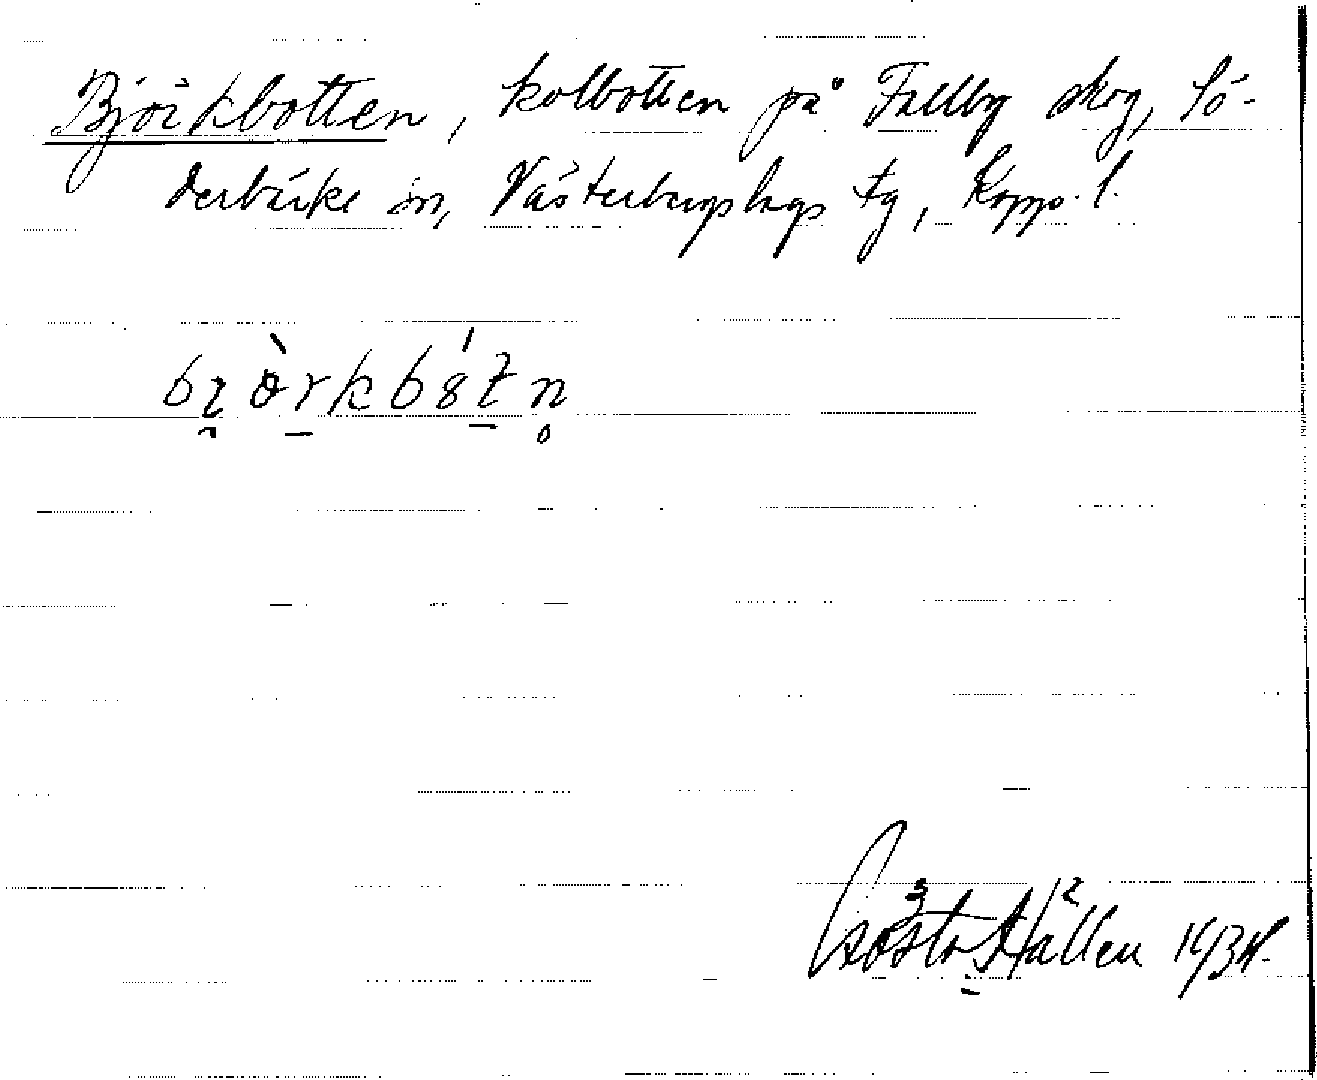 Björkbotten, kolbotten på Fallby skog, Sö-
derbärke sn, Västerbergslags fg, Kopp. l.
Gösta Hällen 1934.